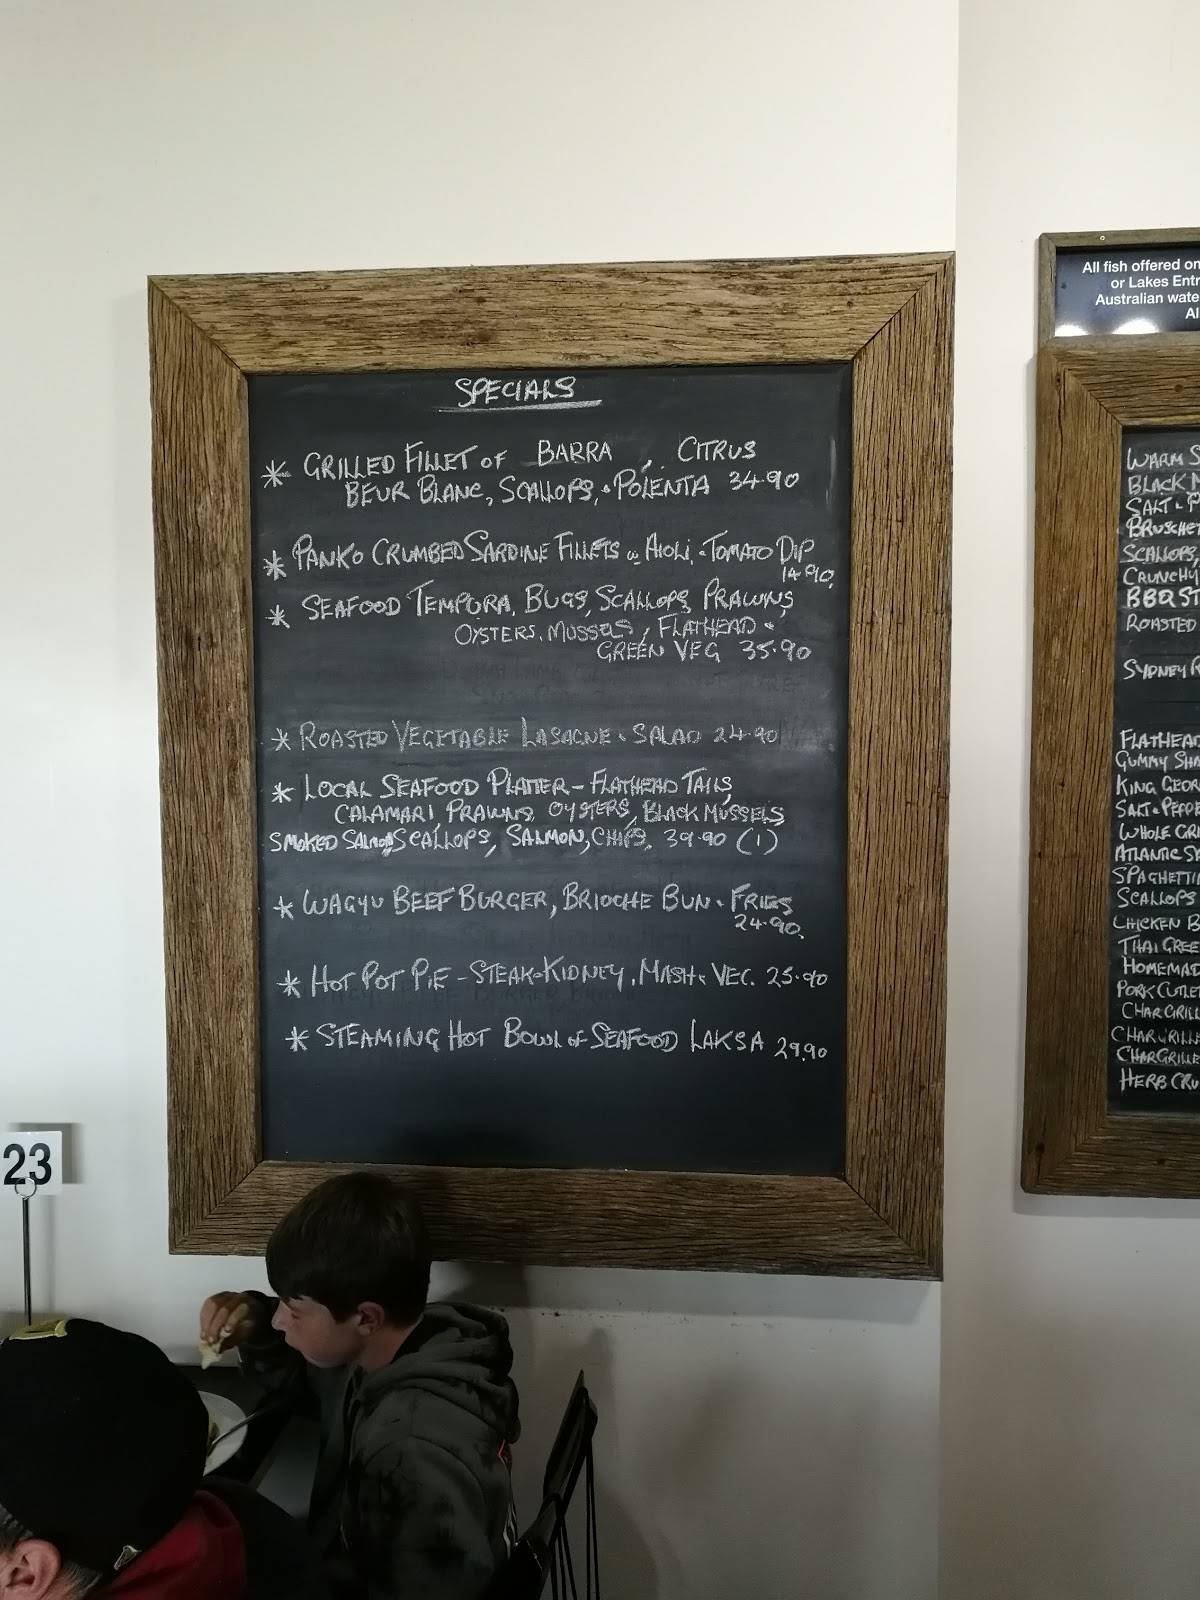 SPECIALS
* GRILLED FILLET OF BARRA, CITRUS
BEUR BLANC, SCALLOPS, & POLENTA 34.90
* PANKO CRUMBED SARDINE FILLETS w AIOLI & TOMATO DIP
14.90
* SEAFOOD TEMPORA, BUGS, SCALLOPS, PRAWNS
OYSTERS, MUSSELS, FLATHEAD &
GREEN VEG 35.90
* ROASTED VEGETABLE LASAGNE & SALAD 24.90
* LOCAL SEAFOOD PLATTER - FLATHEAD TAILS,
CALAMARI, PRAWNS, OYSTERS, BLACK MUSSELS,
SMOKED SALMON, SCALLOPS, SALMON, CHIPS, 39.90 (1)
* WAGYU BEEF BURGER, BRIOCHE BUN & FRIES
24.90.
* HOT POT PIE - STEAK & KIDNEY, MASH & VEG. 25.90
* STEAMING HOT BOWL OF SEAFOOD LAKSA 29.90
23
All fish offered on
or Lakes Entr
Australian wate
Al
WARM S
BLACK M
SALT & P
BRUSCHET
SCALLOPS,
CRUNCHY
BBQ ST
ROASTED
SYDNEY R
FLATHEAD
GUMMY SHA
KING GEOR
SALT & PEPP
WHOLE GRI
ATLANTIC S
SPAGHETTI
SCALLOPS
CHICKEN B
THAI GREE
HOMEMAD
PORK CUTLET
CHARGRILL
CHARGRILLE
CHARGRILLE
HERB CRU